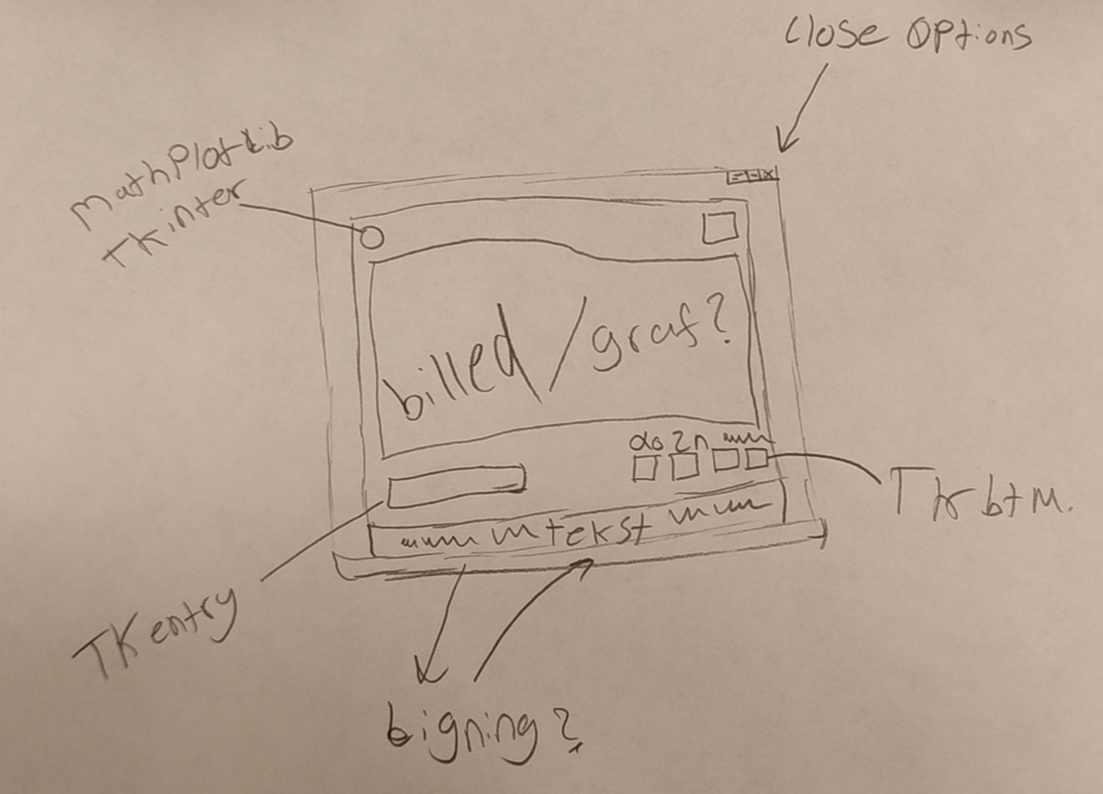 Close Options
MathPlotLib
TKinter
billed/graf?
do 2n
Tk btn.
tekst
TK entry
bigning?